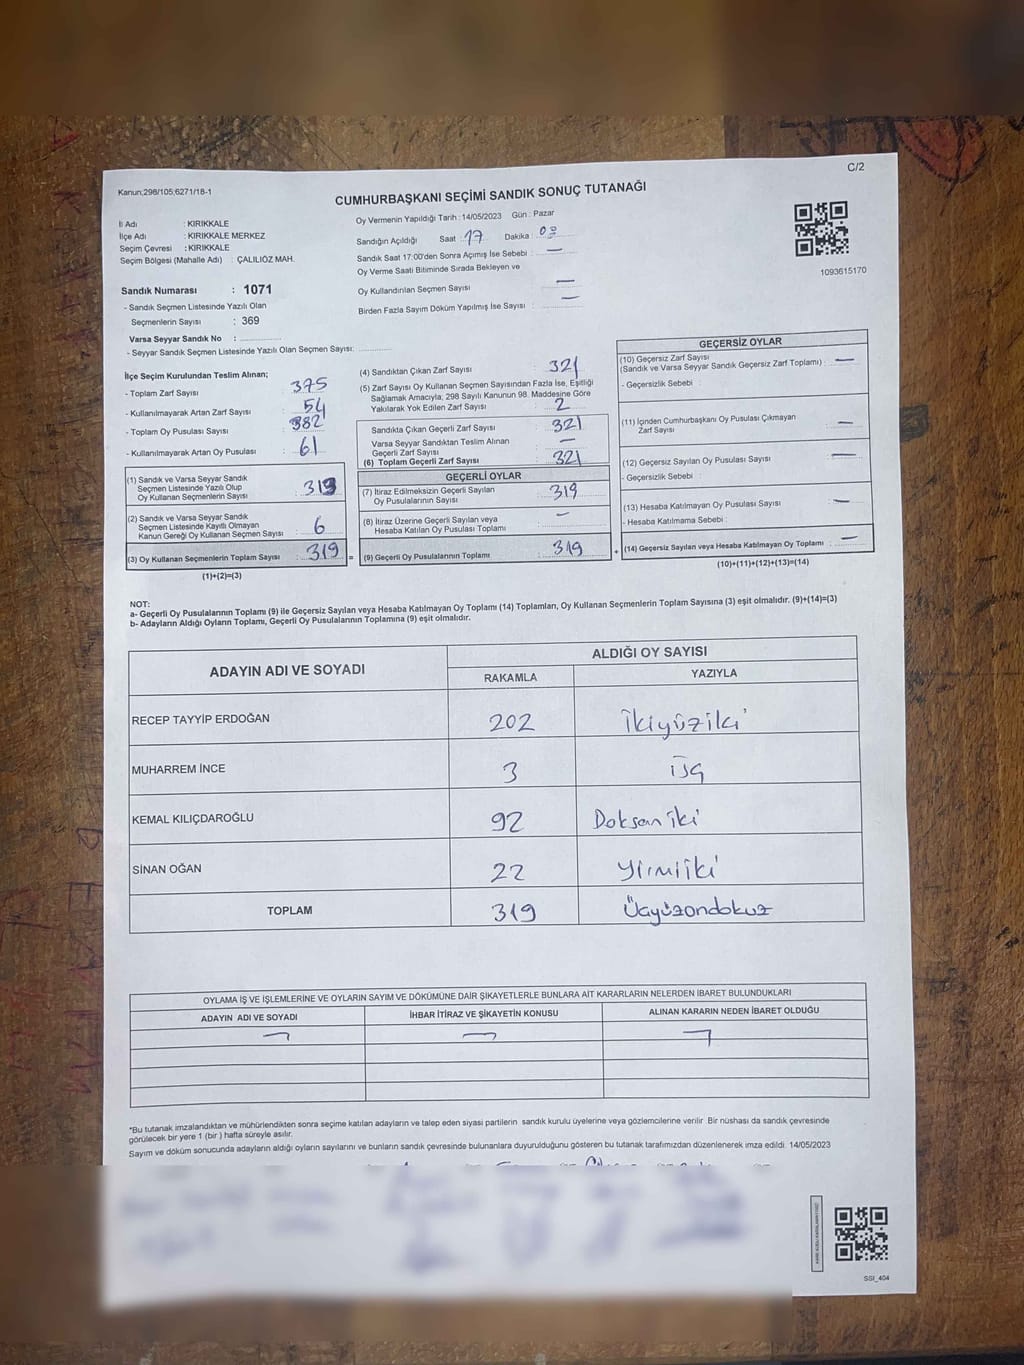 C/2
Kanun;298/105;6271/18-1
CUMHURBAŞKANI SEÇİMİ SANDIK SONUÇ TUTANAĞI
İl Adı : KIRIKKALE
İlçe Adı : KIRIKKALE MERKEZ
Seçim Çevresi : KIRIKKALE
Seçim Bölgesi (Mahalle Adı) : ÇALILIÖZ MAH.
Sandık Numarası : 1071
- Sandık Seçmen Listesinde Yazılı Olan
Seçmenlerin Sayısı : 369
Varsa Seyyar Sandık No :
- Seyyar Sandık Seçmen Listesinde Yazılı Olan Seçmen Sayısı:
Oy Vermenin Yapıldığı Tarih : 14/05/2023 Gün : Pazar
Sandığın Açıldığı Saat : 17 Dakika : 00
Sandık Saat 17:00'den Sonra Açımış İse Sebebi : —
Oy Verme Saati Bitiminde Sırada Bekleyen ve
Oy Kullandırılan Seçmen Sayısı : —
Birden Fazla Sayım Döküm Yapılmış İse Sayısı : —
1093615170
İlçe Seçim Kurulundan Teslim Alınan;
- Toplam Zarf Sayısı : 375
- Kullanılmayarak Artan Zarf Sayısı : 54
- Toplam Oy Pusulası Sayısı : 382
- Kullanılmayarak Artan Oy Pusulası : 61
(1) Sandık ve Varsa Seyyar Sandık
Seçmen Listesinde Yazılı Olup
Oy Kullanan Seçmenlerin Sayısı
(2) Sandık ve Varsa Seyyar Sandık
Seçmen Listesinde Kayıtlı Olmayan
Kanun Gereği Oy Kullanan Seçmen Sayısı : 6
(3) Oy Kullanan Seçmenlerin Toplam Sayısı : 319 =
(1)+(2)=(3)
(4) Sandıktan Çıkan Zarf Sayısı : 321
(5) Zarf Sayısı Oy Kullanan Seçmen Sayısından Fazla İse, Eşitliği
Sağlamak Amacıyla, 298 Sayılı Kanunun 98. Maddesine Göre
Yakılarak Yok Edilen Zarf Sayısı : 2
Sandıkta Çıkan Geçerli Zarf Sayısı : 321
Varsa Seyyar Sandıktan Teslim Alınan
Geçerli Zarf Sayısı : —
(6) Toplam Geçerli Zarf Sayısı : 321
GEÇERLİ OYLAR
(7) İtiraz Edilmeksizin Geçerli Sayılan
Oy Pusulalarının Sayısı : 319
(8) İtiraz Üzerine Geçerli Sayılan veya
Hesaba Katılan Oy Pusulası Toplamı : —
(9) Geçerli Oy Pusulalarının Toplamı : 319 +
GEÇERSİZ OYLAR
(10) Geçersiz Zarf Sayısı
(Sandık ve Varsa Seyyar Sandık Geçersiz Zarf Toplamı) : —
- Geçersizlik Sebebi :
(11) İçinden Cumhurbaşkanı Oy Pusulası Çıkmayan
Zarf Sayısı : —
(12) Geçersiz Sayılan Oy Pusulası Sayısı : —
- Geçersizlik Sebebi :
(13) Hesaba Katılmayan Oy Pusulası Sayısı : —
- Hesaba Katılmama Sebebi :
(14) Geçersiz Sayılan veya Hesaba Katılmayan Oy Toplamı : —
(10)+(11)+(12)+(13)=(14)
NOT:
a- Geçerli Oy Pusulalarının Toplamı (9) ile Geçersiz Sayılan veya Hesaba Katılmayan Oy Toplamı (14) Toplamları, Oy Kullanan Seçmenlerin Toplam Sayısına (3) eşit olmalıdır. (9)+(14)=(3)
b- Adayların Aldığı Oyların Toplamı, Geçerli Oy Pusulalarının Toplamına (9) eşit olmalıdır.
ADAYIN ADI VE SOYADI
ALDIĞI OY SAYISI
RAKAMLA YAZIYLA
RECEP TAYYİP ERDOĞAN 202 ikiyüziki
MUHARREM İNCE 3 üç
KEMAL KILIÇDAROĞLU 92 Doksan iki
SİNAN OĞAN 22 yirmiiki
TOPLAM 319 Üçyüzondokuz
OYLAMA İŞ VE İŞLEMLERİNE VE OYLARIN SAYIM VE DÖKÜMÜNE DAİR ŞİKAYETLERLE BUNLARA AİT KARARLARIN NELERDEN İBARET BULUNDUKLARI
ADAYIN ADI VE SOYADI İHBAR İTİRAZ VE ŞİKAYETİN KONUSU ALINAN KARARIN NEDEN İBARET OLDUĞU
*Bu tutanak imzalandıktan ve mühürlendikten sonra seçime katılan adayların ve talep eden siyasi partilerin sandık kurulu üyelerine veya gözlemcilerine verilir. Bir nüshası da sandık çevresinde
görülecek bir yere 1 (bir ) hafta süreyle asılır.
Sayım ve döküm sonucunda adayların aldığı oyların sayılarını ve bunların sandık çevresinde bulunanlara duyurulduğunu gösteren bu tutanak tarafımızdan düzenlenerek imza edildi. 14/05/2023
SSI_404